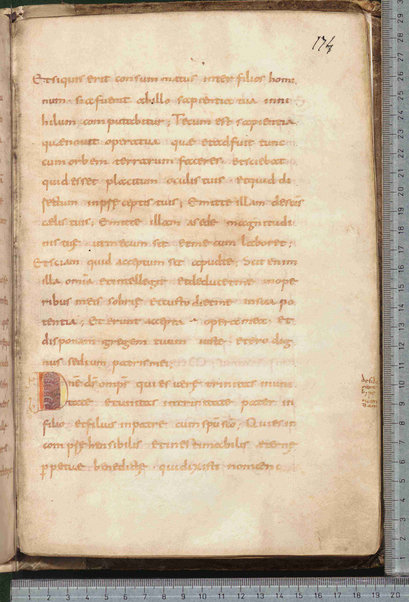 174
Et siquis erit consummatus inter filios homi
num si afuerit ab illo sapientia tua in ni
hilum computabitur; Tecum est sapientia
quae novit opera tua quae et adfuit tunc
cum orbem terrarum faceres et sciebat
quid esset placitum oculis tuis et quid di
rectum in p̄ceptis tuis; Emitte illam de scis
caelis tuis; Emitte illam a sede magnitudi
nis tuae ut mecum sit et mecum laboret;
Et sciam quid acceptum sit apud te; Scit enim
illa omnia et intellegit et deducet me in ope
ribus meis sobrie et custodiet me in sua po
tentia; Et erunt accepta opera mea et
disponam gregem tuum iuste et ero dig
nus sedium patris mei
Dne ds omps qui es vere trinitas in uni
tate et unitas in trinitate pater in
filio et filius in patre cum spu sco; Qui es in
conp̄hensibilis et inestimabilis et
p̄petuae benedicte qui dixisti nomen